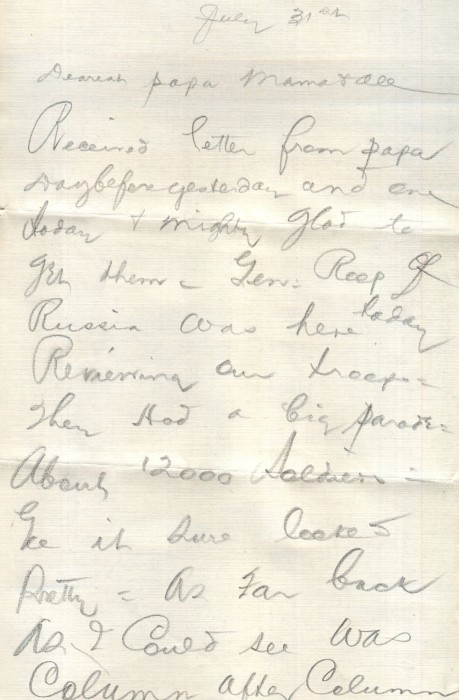 July 31st
Dearest papa Mama & all
Received letter from papa
day before yesterday and one
today & mighty glad to
get them = Gen. Roop of
Russia was here today
Reviewing our troops =
They Had a big parade =
About 12000 Soldiers =
Gee it sure looked
pretty = As Far back
As I Could see was
Column after Column